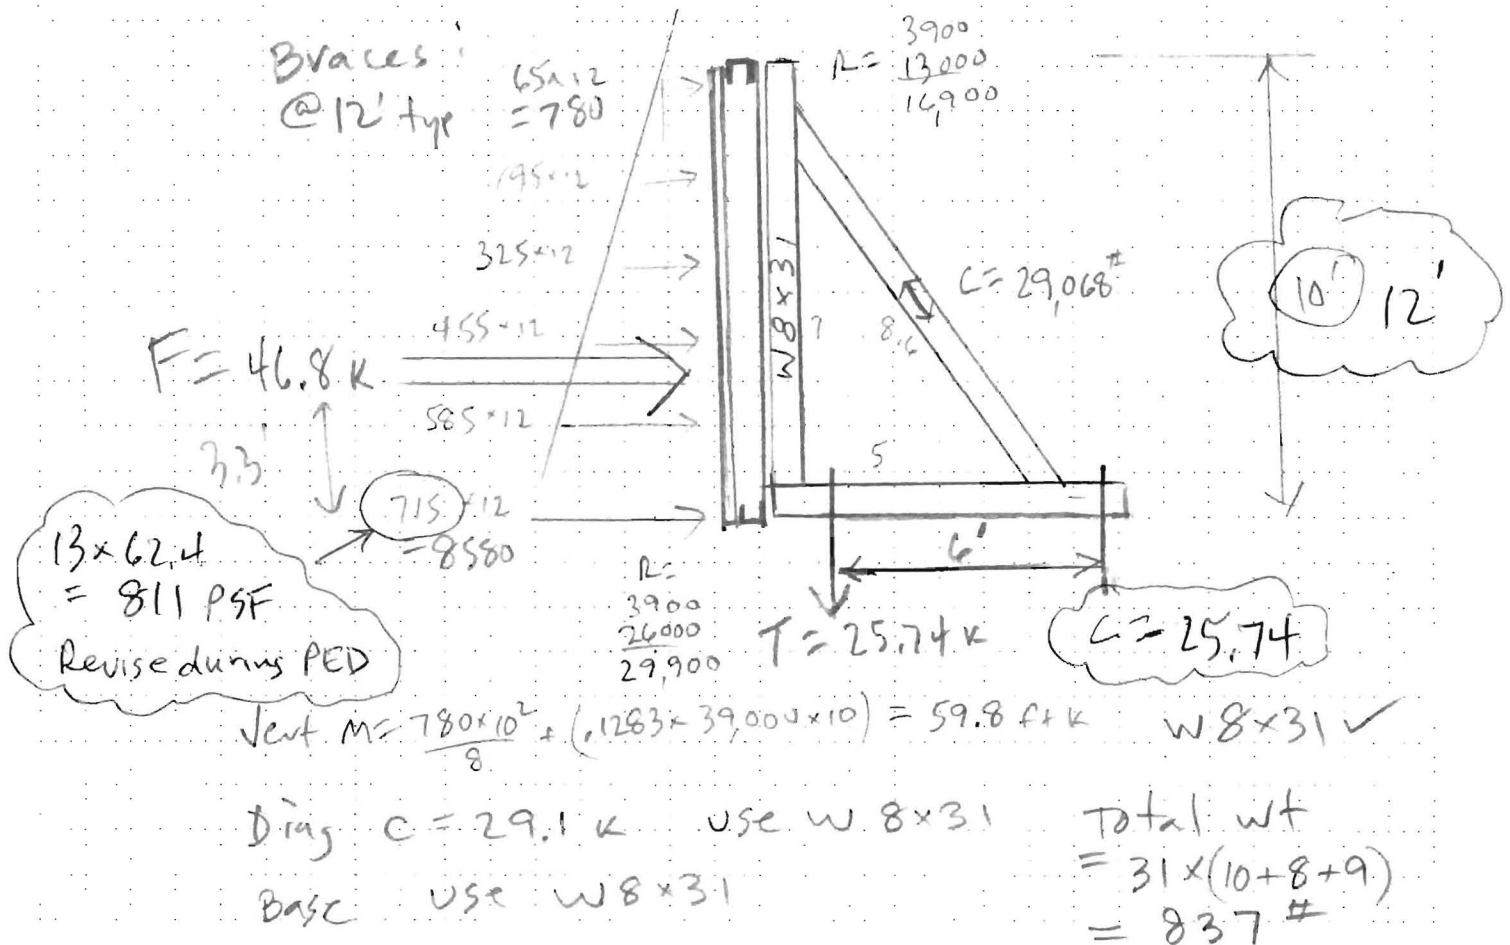 Braces:
@12' typ
65×12
=780
195×12
325×12
455×12
F= 46.8 K
585×12
3.3'
715×12
=8580
13×62.4
= 811 PSF
Revise during PED
R= 3900
13000
16,900
W8×31
7
8.6
C= 29,068#
5
6'
10' 12'
R=
3900
26000
29,900
T= 25.74 K
C= 25.74
Vert M= 780×10²/8 + (.1283×39,000×10) = 59.8 ft k W8×31 ✓
Diag C = 29.1 K use W 8×31
Base use W8×31
Total wt
= 31×(10+8+9)
= 837#